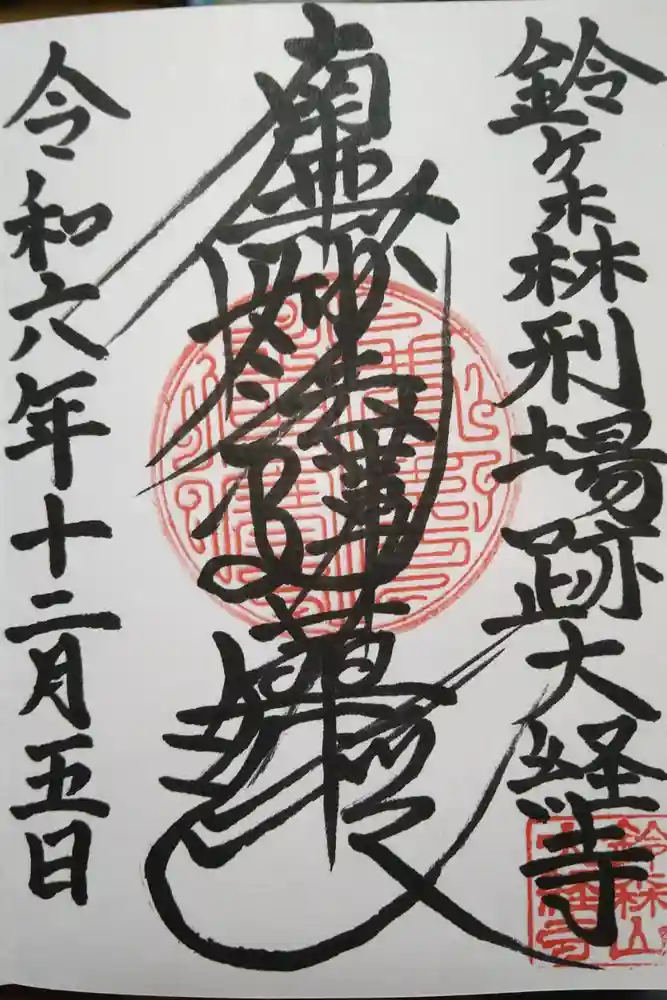 鈴ヶ森刑場跡大経寺
南無妙法蓮華経
令和六年十二月五日